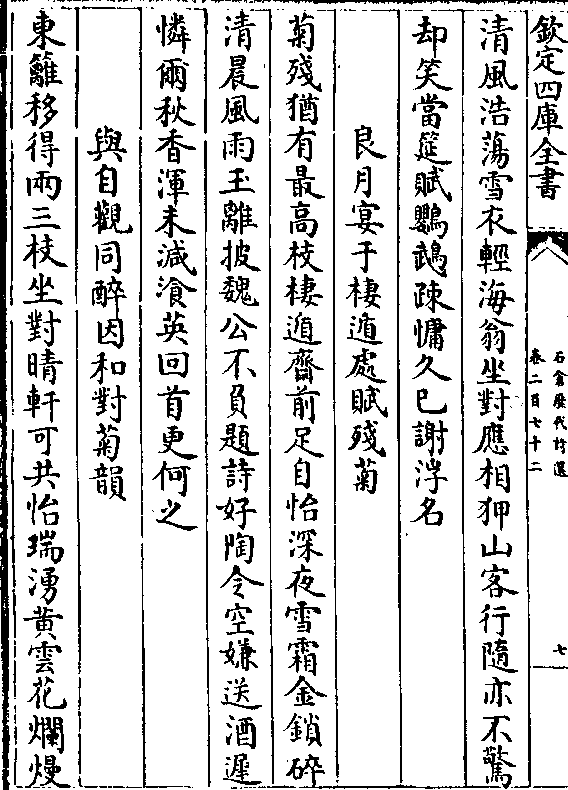 欽定四庫全書
石倉歷代詩選
卷二百七十二
七
清風浩蕩雪衣輕海翁坐對應相狎山客行隨亦不驚
却笑當筵賦鸚鵡疎慵久已謝浮名
良月宴于棲遁處賦殘菊
菊殘猶有最高枝棲遁齋前足自怡深夜雪霜金鎖碎
清晨風雨玉離披魏公不負題詩好陶令空嫌送酒遲
憐爾秋香渾未減飡英回首更何之
與自觀同醉因和對菊韻
東籬移得兩三枝坐對晴軒可共怡瑞湧黃雲花爛熳